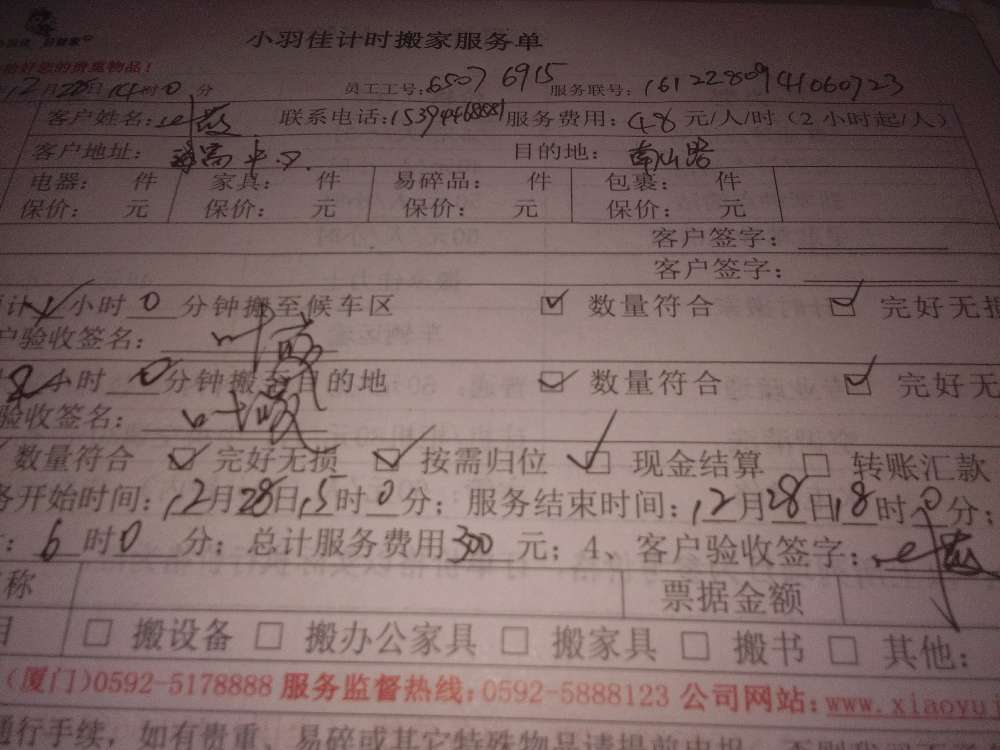 小羽佳计时搬家服务单
您的贵重物品！
12月28日14时0分 员工工号：65076915 服务联号：1612280941060723
客户姓名：叶 联系电话：15394468881 服务费用：48元/人/时（2小时起/人）
客户地址： 目的地：南山路
电器： 件 家具： 件 易碎品： 件 包裹： 件
保价： 元 保价： 元 保价： 元 保价： 元
客户签字：
客户签字：
计 小时0分钟搬至候车区 数量符合 完好无损
户验收签名：叶
2小时0分钟搬至目的地 数量符合 完好无
验收签名：叶
数量符合 完好无损 按需归位 现金结算 转账汇款
务开始时间：12月28日15时0分；服务结束时间：12月28日18时0分；
：6时0分；总计服务费用300元；4、客户验收签字：叶
称 票据金额
目 搬设备 搬办公家具 搬家具 搬书 其他：
（厦门）0592-5178888 服务监督热线：0592-5888123 公司网站：www.xiaoyu
通行手续，如有贵重、易碎或其它特殊物品请提前申报，否则